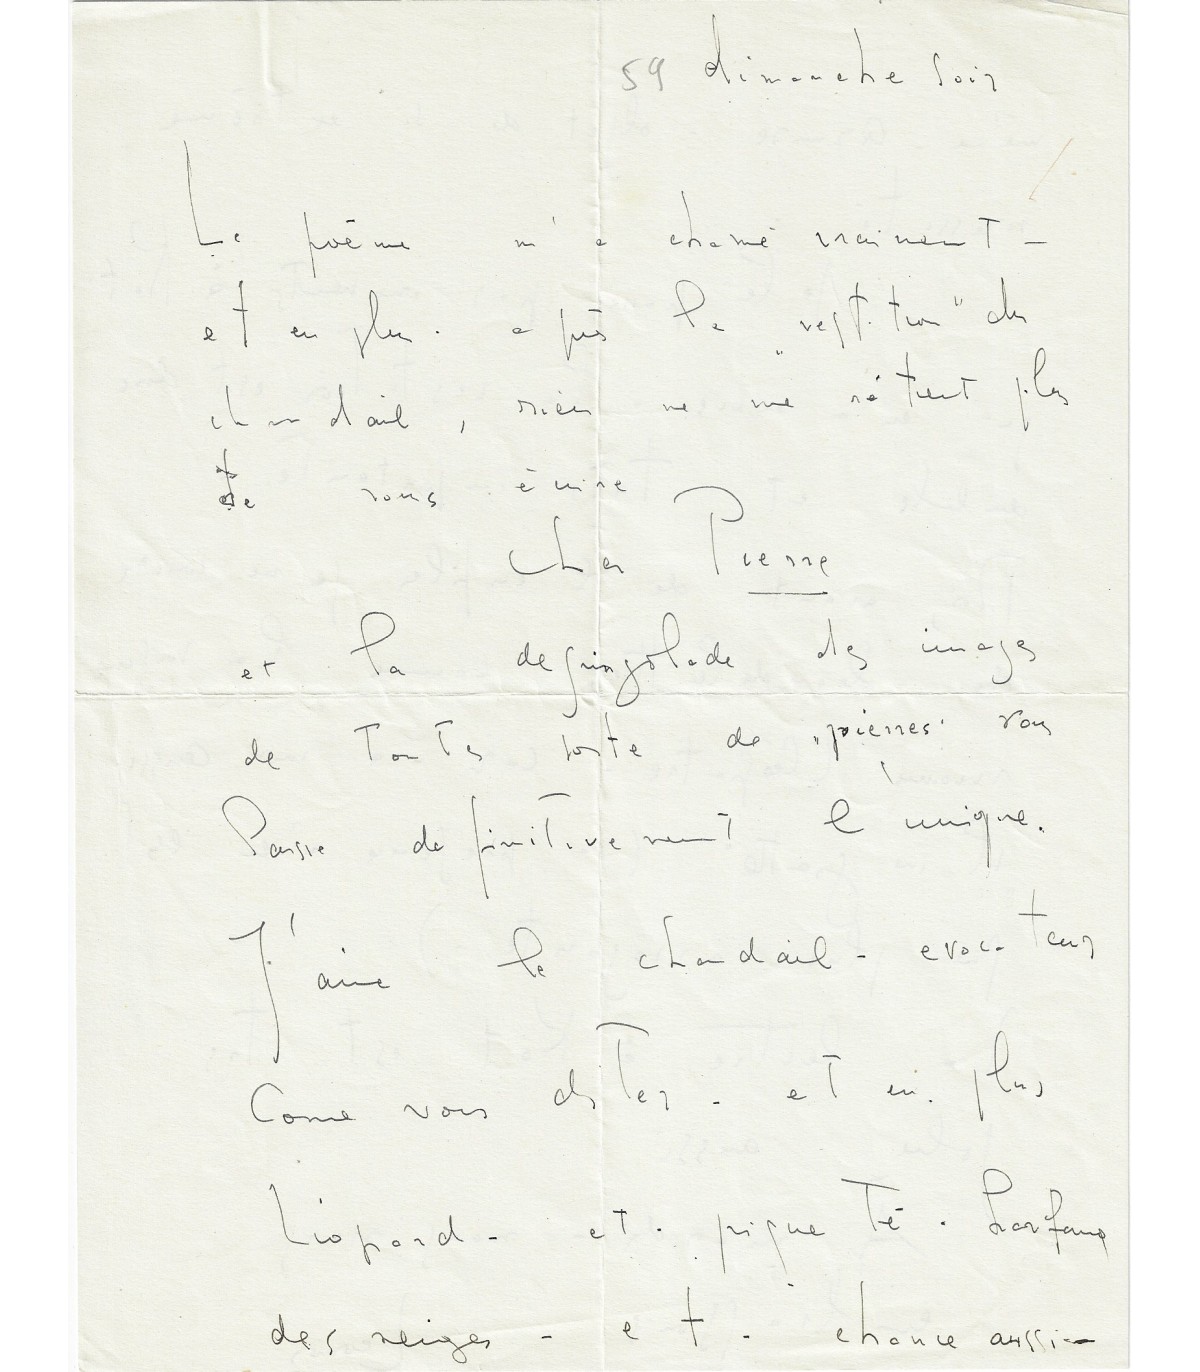 59 dimanche soir
Le poème m'a charmé vraiment -
et en plus. après la " " du
chandail, rien ne me retient plus
de vous écrire
Cher Pierre
et la degringolade des images
de toutes sorte de "pierres" vous
laisse definitivement l'unique.
J'aime le chandail - evocateur
Come vous dites - et en plus
Léopard - et. piqueté. harfang
des neiges - et. chance aussi -